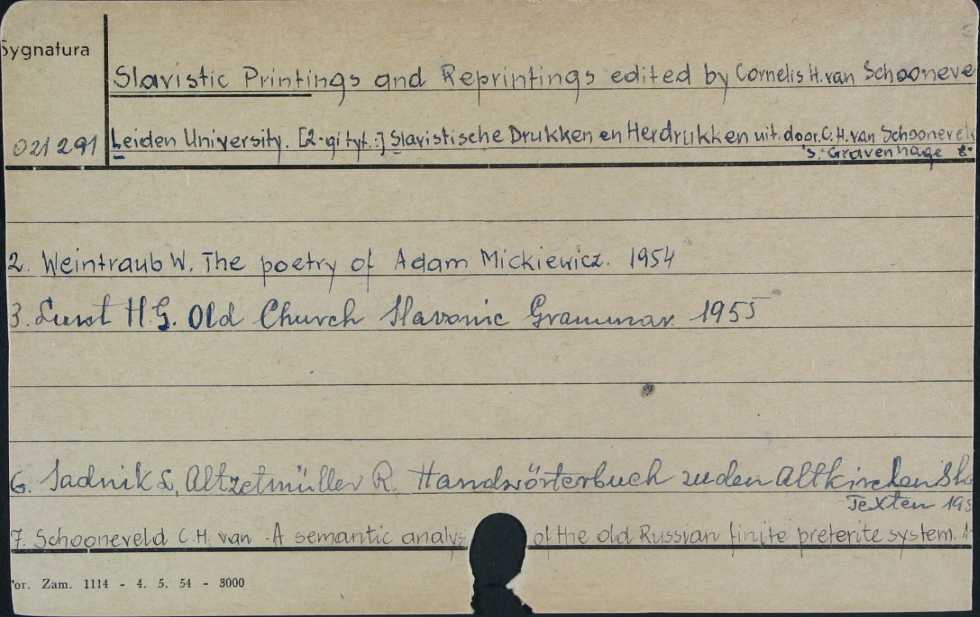 Sygnatura
Slavistic Printings and Reprintings edited by Cornelis H. van Schooneve
021291 Leiden University. [2-gi tyt.:] Slavistische Drukken en Herdrukken uit. door C.H. van Schooneveld
's-Gravenhage
2. Weintraub W. The poetry of Adam Mickiewicz. 1954
3. Lunt H.G. Old Church Slavonic Grammar. 1955
6. Sadnik L., Altzetmüller R. Handwörterbuch zu den Altkirchenslav
Texten 195
7. Schooneveld C.H. van - A semantic analys of the old Russian finite preterite system.
or. Zam. 1114 - 4. 5. 54 - 3000